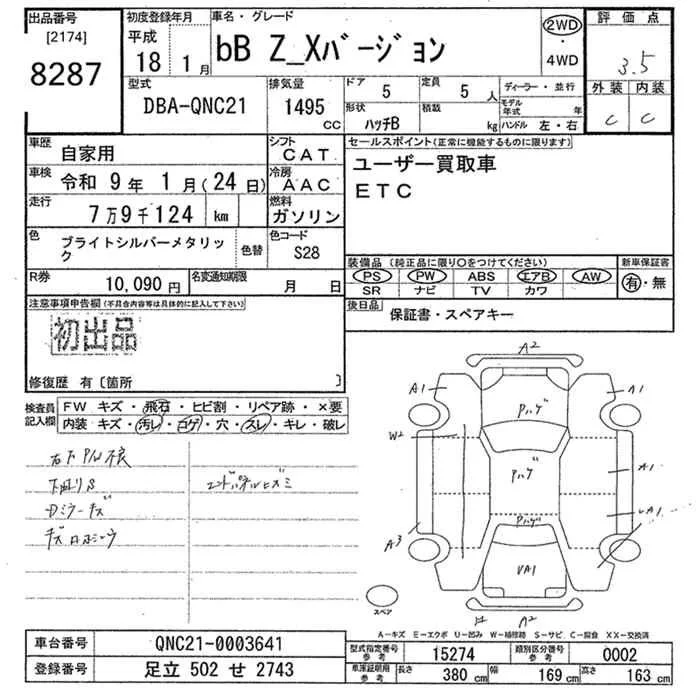 出品番号
[2174]
8287
初度登録年月
平成
18 1月
車名・グレード
bB Z_Xバージョン
2WD
・
4WD
評価点
3.5
外装 内装
C C
型式
DBA-QNC21
排気量
1495
CC
ドア
5
定員
5人
形状
ハッチB
積載
kg
ディーラー・並行
モデル年式 年
ハンドル 左・右
車歴
自家用
シフト
CAT
車検
令和 9年 1月(24日)
冷房
AAC
走行
7万9千124 km
燃料
ガソリン
色
ブライトシルバーメタリック
色替
色コード
S28
R券
10,090円
名変通知期限
月 日
セールスポイント(正常に機能するものに限ります)
ユーザー買取車
ETC
装備品(純正品に限り○をつけてください)
PS PW ABS エアB AW
SR ナビ TV カワ
新車保証書
有・無
後日品
保証書・スペアキー
注意事項申告欄(不具合内容等は具体的に記入して下さい)
初出品
修復歴 有〔箇所 〕
検査員記入欄
FW キズ・飛石・ヒビ割・リペア跡・×要
内装 キズ・汚レ・コゲ・穴・スレ・キレ・破レ
下廻りS
Dミラーキズ
A2
A1 A1
Pハゲ
W2
Pハゲ
A1
Pハゲ
A3
UA1
A2
スペア
A-キズ E-エクボ U-凹み W-補修跡 S-サビ C-腐食 XX-交換済
車台番号
QNC21-0003641
登録番号
足立 502 せ 2743
型式指定番号
参考
15274
類別区分番号
参考
0002
車庫証明用
参考
長さ
380 cm
幅
169 cm
高さ
163 cm